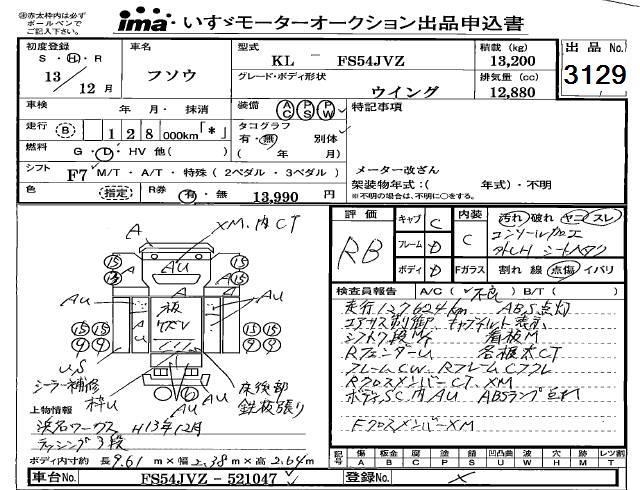 ㊟赤太枠内は必ず
ボールペンで
ご記入下さい。
ima・いすゞモーターオークション出品申込書
初度登録
S・H・R
13 12 月
車名
フソウ
型式
KL － FS54JVZ
グレード・ボディ形状
ウイング
積載 (kg)
13,200
排気量 (cc)
12,880
出品No.
3129
車検 年 月・ 抹消
装備 AC PS PW
特記事項
走行 (B) 128 000km「*」
タコグラフ
有・無 別体
( 年 月)
燃料 G・L・HV 他( )
シフト F7 M/T・A/T・特殊(2ペダル・3ペダル)
メーター改ざん
架装物年式:( 年式)・不明
※不明の場合は、不明に○をする。
色 (指定) R券 有・無 13,990 円
評価
RB
キャブ C
フレーム D
ボディ D
内装
C
Fガラス
汚れ 破れ ヤニ スレ
コンソール加工
シート
割れ 線 点傷 イバリ
検査員報告 A/C( 不良 ) B/T( )
走行127624km ABS点灯
エアサス制御 キャブチルト表示
シフトノブ段M/ 看板M
RフェンダーU 名板太CT
フレームCW RフレームC
RクロスメンバーCT XM
ボディSC内AU ABSランプ
FクロスメンバーXM
A XM、内CT
15 15
AU AU AU
板
15 15 15 15
9 9 9 9
U,S
シーラー補修
枠U
AU AU
床後部
鉄板張り
上物情報
浜名ワークス H13年12月
ラッシング3段
ボディ内寸約 長9.61 m×幅2.38 m×高2.64 m
記号 傷 A 板金 B 腐 C 塗 P 錆 S 凹凸曲 U 波 W 穴 H 跡 M レツ割 T
車台No. FS54JVZ - 521047
登録No.